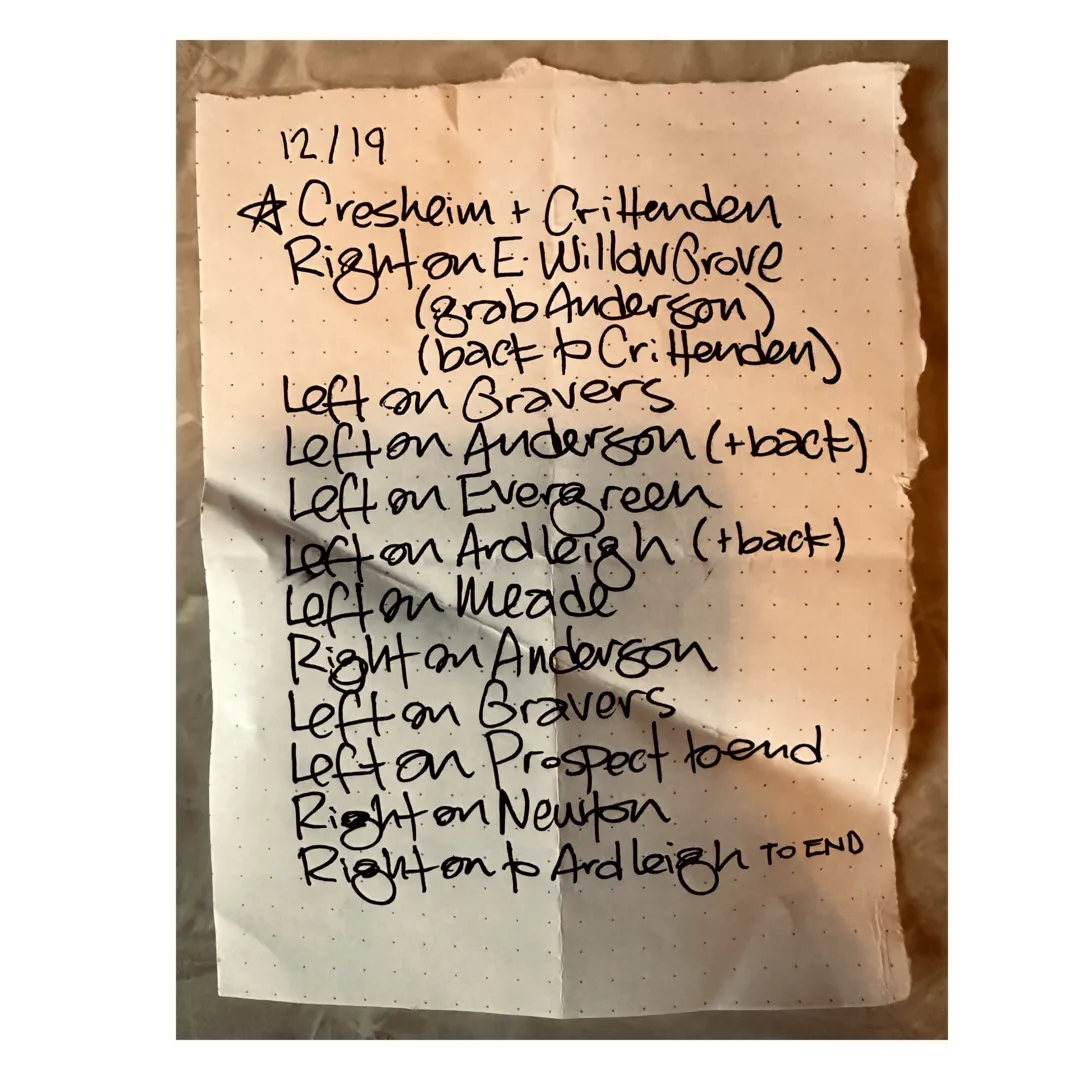 12/19
☆ Cresheim + Crittenden
Right on E. Willow Grove
(grab Anderson)
(back to Crittenden)
Left on Gravers
Left on Anderson (+back)
Left on Evergreen
Left on Ardleigh (+back)
Left on Meade
Right on Anderson
Left on Gravers
Left on Prospect to end
Right on Newton
Right on to Ardleigh TO END